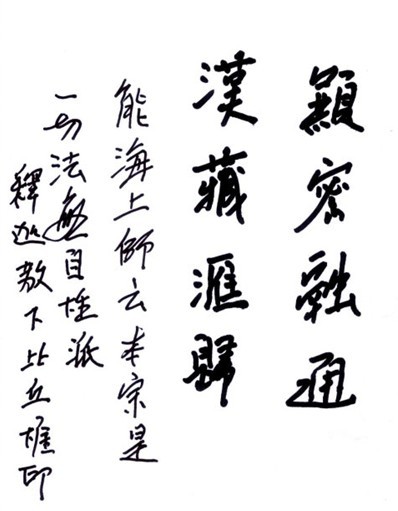 顯密融通
漢藏滙歸
能海上師云本宗是
一切法無自性派
釋迦教下比丘印